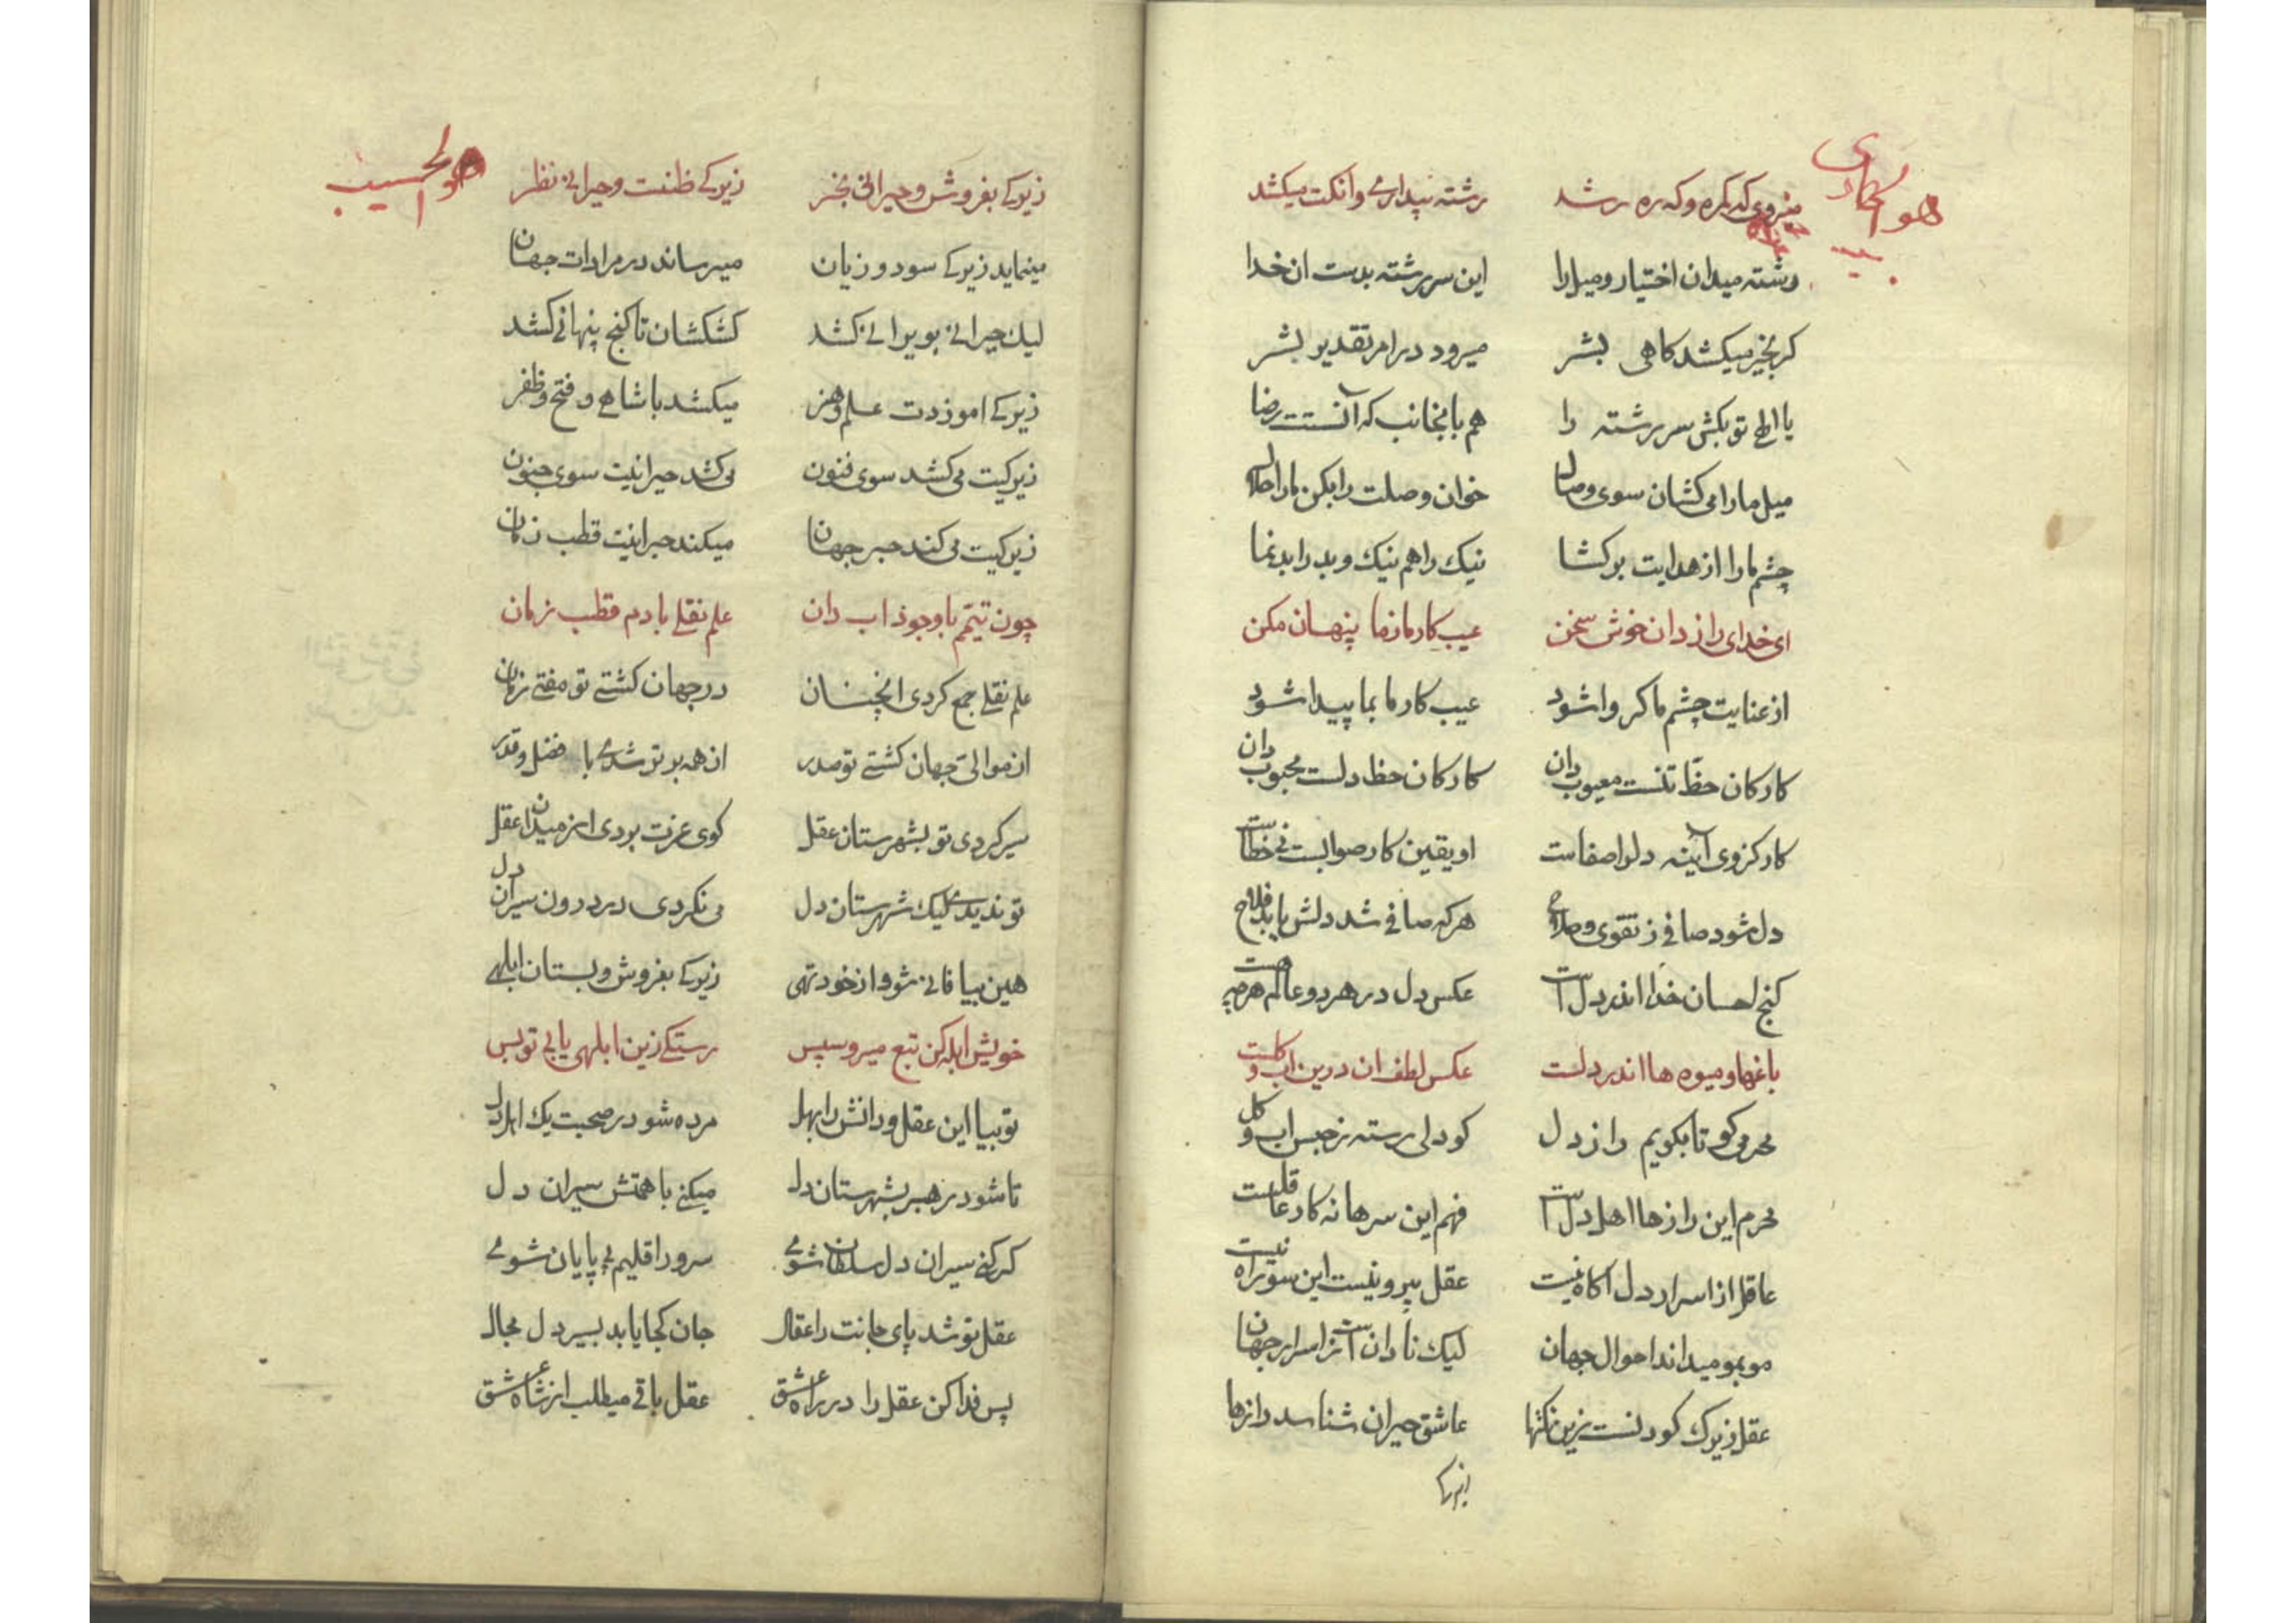 هو الهادی
میروی که کمره و که ره رشد رشته پیدا نی و آنکت میکشد
رشته میدان اختیار و میل را این سر رشته بدست ان خدا
کر بخیر میکشد کاهی بشر میرود در امر تقدیر بشر
یا الهی تو بکش سر رشته را هم بانجانب که آنستت رضا
میل ما را می کشان سوی وصال خوان وصلت را بکن ما را حلال
چشم ما را از هدایت بر کشا نیک را هم نیک و بد را بد نما
ای خدای راز دان خوش سخن عیب کار ما ز ما پنهان مکن
از عنایت چشم ما کر وا شود عیب کار ما بما پیدا شود
کار کان حظّ تنست معیوب دان کار کان حظ دلت محبوب دان
کار کزوی آینه دل را صفاست او یقین کار صوابست نی خطاست
دل شود صافی ز تقوی و صلاح هر که صافی شد دلش یابد فلاح
کنج احسان خدا اندر دل است عکس دل در هر دو عالم هر چه هست
باغها و میوه ها اندر دلست عکس لطف ان درین اب و کلست
محرمی کو تا بکویم راز دل کو دلی رسته ز حبس اب و کل
محرم این رازها اهل دل است فهم این سرها نه کار عاقلست
عاقل از اسرار دل اکاه نیست عقل پیرو نیست این سو راه نیست
موبمو میداند احوال جهان لیک نادان است ز اسرار جهان
عقل زیرک کودنست زین نکتها عاشق حیران شناسد رازها
هو الحسیب
زیرکی بفروش و حیرانی بخر زیرکی ظنست و حیرانی نظر
مینماید زیرکی سود و زیان میرساند در مرادات جهان
لیک حیرانی بویرانی کشد کشکشان تا کنج پنهانی کشد
زیرکی اموزدت علم و هنر میکشد با شاهی و فتح و ظفر
زیرکیت می کشد سوی فنون می کشد حیرانیت سوی جنون
زیرکیت می کند حبر جهان میکند حیرانیت قطب زمان
چون تیمّم با وجود اب دان علم نقلی با دم قطب زمان
علم نقلی جمع کردی انچنان در جهان کشتی تو مفتی زمان
از موالیّ جهان کشتی تو صدر از همه برتر شدی با فضل و قدر
سیر کردی تو بشهرستان عقل کوی عزت بردی از میدان عقل
تو ندیدی لیک شهرستان دل می نکردی در درون سیران دل
هین بیا فانی شو و از خود تهی زیرکی بفروش و بستان ابلهی
خویش ابله کن تبع میرو سپس رستکی زین ابلهی یابی تو بس
تو بیا این عقل و دانش را بهل مرده شو در صحبت یک اهل دل
تا شود رهبر بشهرستان دل میکنی با همتش سیران دل
کر کنی سیران دل سلطان شوی سرور اقلیم بی پایان شوی
عقل تو شد پای جانت را عقال جان کجا یابد بسیر دل مجال
پس فدا کن عقل را در راه عشق عقل باقی میطلب از شاه عشق